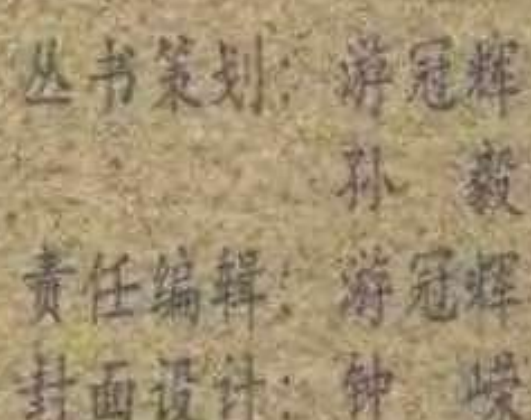 丛书策划：游冠辉
孙 毅
责任编辑：游冠辉
封面设计：钟